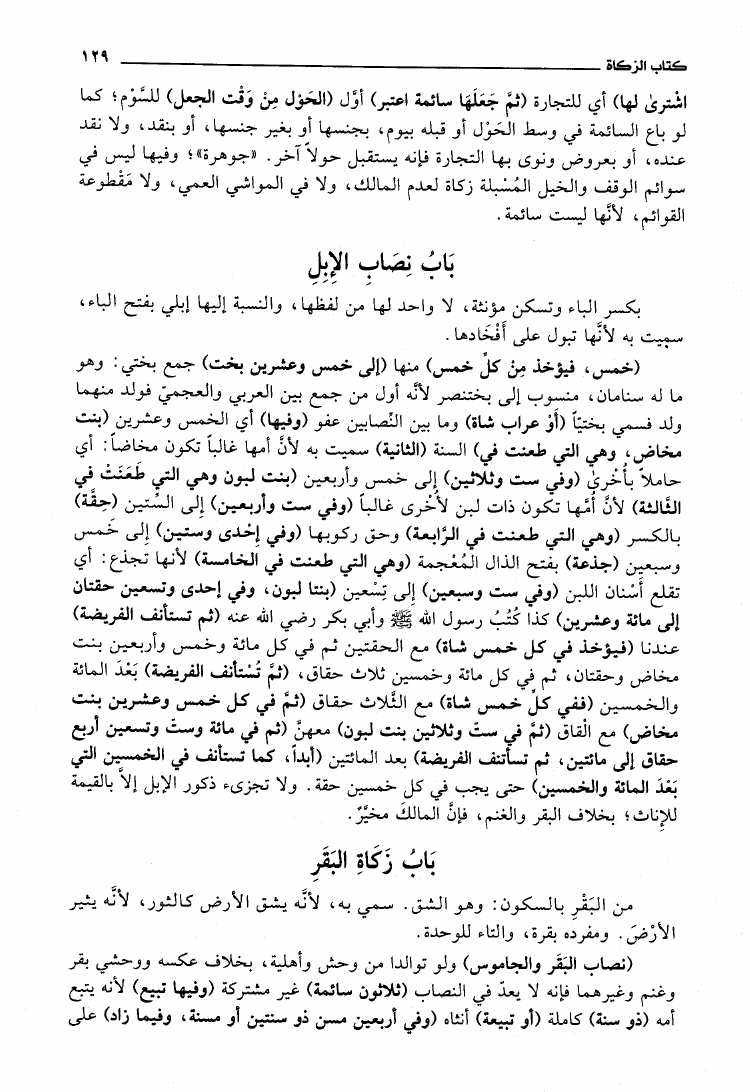 كتاب الزكاة ١٢٩
اشْترىٰ لها) أي للتجارة (ثمَّ جَعَلَهَا سائمة اعتبر) أوَّل (الحَوْل مِنْ وَقْت الجعل) للسَّوْم؛ كما
لو باع السائمة في وسط الحَوْل أو قبله بيوم، بجنسها أو بغير جنسها، أو بنقد، ولا نقد
عنده، أو بعروض ونوى بها التجارة فإنه يستقبل حولاً آخر. «جوهرة»؛ وفيها ليس في
سوائم الوقف والخيل المُسْبلة زكاة لعدم المالك، ولا في المواشي العمي، ولا مَقْطوعة
القوائم، لأنَّها ليست سائمة.
بَابُ نِصَابِ الإِبِلِ
بكسر الباء وتسكن مؤنثة، لا واحد لها من لفظها، والنسبة إليها إبلي بفتح الباء،
سميت به لأنَّها تبول على أَفْخَادها.
(خمس، فيؤخذ مِنْ كلِّ خمس) منها (إلى خمس وعشرين بخت) جمع بختي: وهو
ما له سنامان، منسوب إلى بختنصر لأنَّه أول من جمع بين العربي والعجميّ فولد منهما
ولد فسمي بختيّاً (أَوْ عراب شاة) وما بين النِّصابين عفو (وفيها) أي الخمس وعشرين (بنت
مخاض، وهي التي طعنت في) السنة (الثانية) سميت به لأنَّ أمها غالباً تكون مخاضاً: أي
حاملاً بأُخرىٰ (وفي ست وثلاثين) إلى خمس وأربعين (بنت لبون وهي التي طَعَنَتْ في
الثَّالثة) لأنَّ أُمَّها تكون ذات لبن لأُخْرى غالباً (وفي ست وأربعين) إلى السِّتين (حِقَّة)
بالكسر (وهي التي طعنت في الرَّابعة) وحق ركوبها (وفي إحْدى وستين) إلى خَمس
وسبعين (جذعة) بفتح الذال المُعْجمة (وهي التي طعنت في الخامسة) لأنها تجذع: أي
تقلع أَسْنان اللبن (وفي ست وسبعين) إلى تِسْعين (بنتا لبون، وفي إحدى وتسعين حقتان
إلى مائة وعشرين) كذا كُتُبُ رسول الله ﷺ وأبي بكر رضي الله عنه (ثم تستأنف الفريضة)
عندنا (فيؤخذ في كل خمس شاة) مع الحقتين ثم في كل مائة وخمس وأربعين بنت
مخاض وحقتان، ثم في كل مائة وخمسين ثلاث حقاق، (ثمَّ تُسْتأنف الفريضة) بَعْدَ المائة
والخمسين (ففي كلِّ خمس شاة) مع الثَّلاث حقاق (ثمَّ في كل خمس وعشرين بنت
مخاض) مع الْقاق (ثمَّ في ستّ وثلاثين بنت لبون) معهنَّ (ثم في مائة وستّ وتسعين أربع
حقاق إلى مائتين، ثم تسأتنف الفريضة) بعد المائتين (أبداً، كما تستأنف في الخمسين التي
بَعْدَ المائة والخمسين) حتى يجب في كل خمسين حقة. ولا تجزىء ذكور الإبل إلاَّ بالقيمة
للإناث؛ بخلاف البقر والغنم، فإنَّ المالكَ مخيَّرٌ.
بَابُ زَكَاةِ البَقَرِ
من البَقْرِ بالسكون: وهو الشق. سمي به، لأنَّه يشق الأرض كالثور، لأنَّه يثير
الأَرْضَ. ومفرده بقرة، والتاء للوحدة.
(نصاب البَقَر والجاموس) ولو توالدا من وحش وأهلية، بخلاف عكسه ووحشي بقر
وغنم وغيرهما فإنه لا يعدّ في النصاب (ثلاثون سائمة) غير مشتركة (وفيها تبيع) لأنه يتبع
أمه (ذو سنة) كاملة (أو تبيعة) أنثاه (وفي أربعين مسن ذو سنتين أو مسنة، وفيما زاد) على